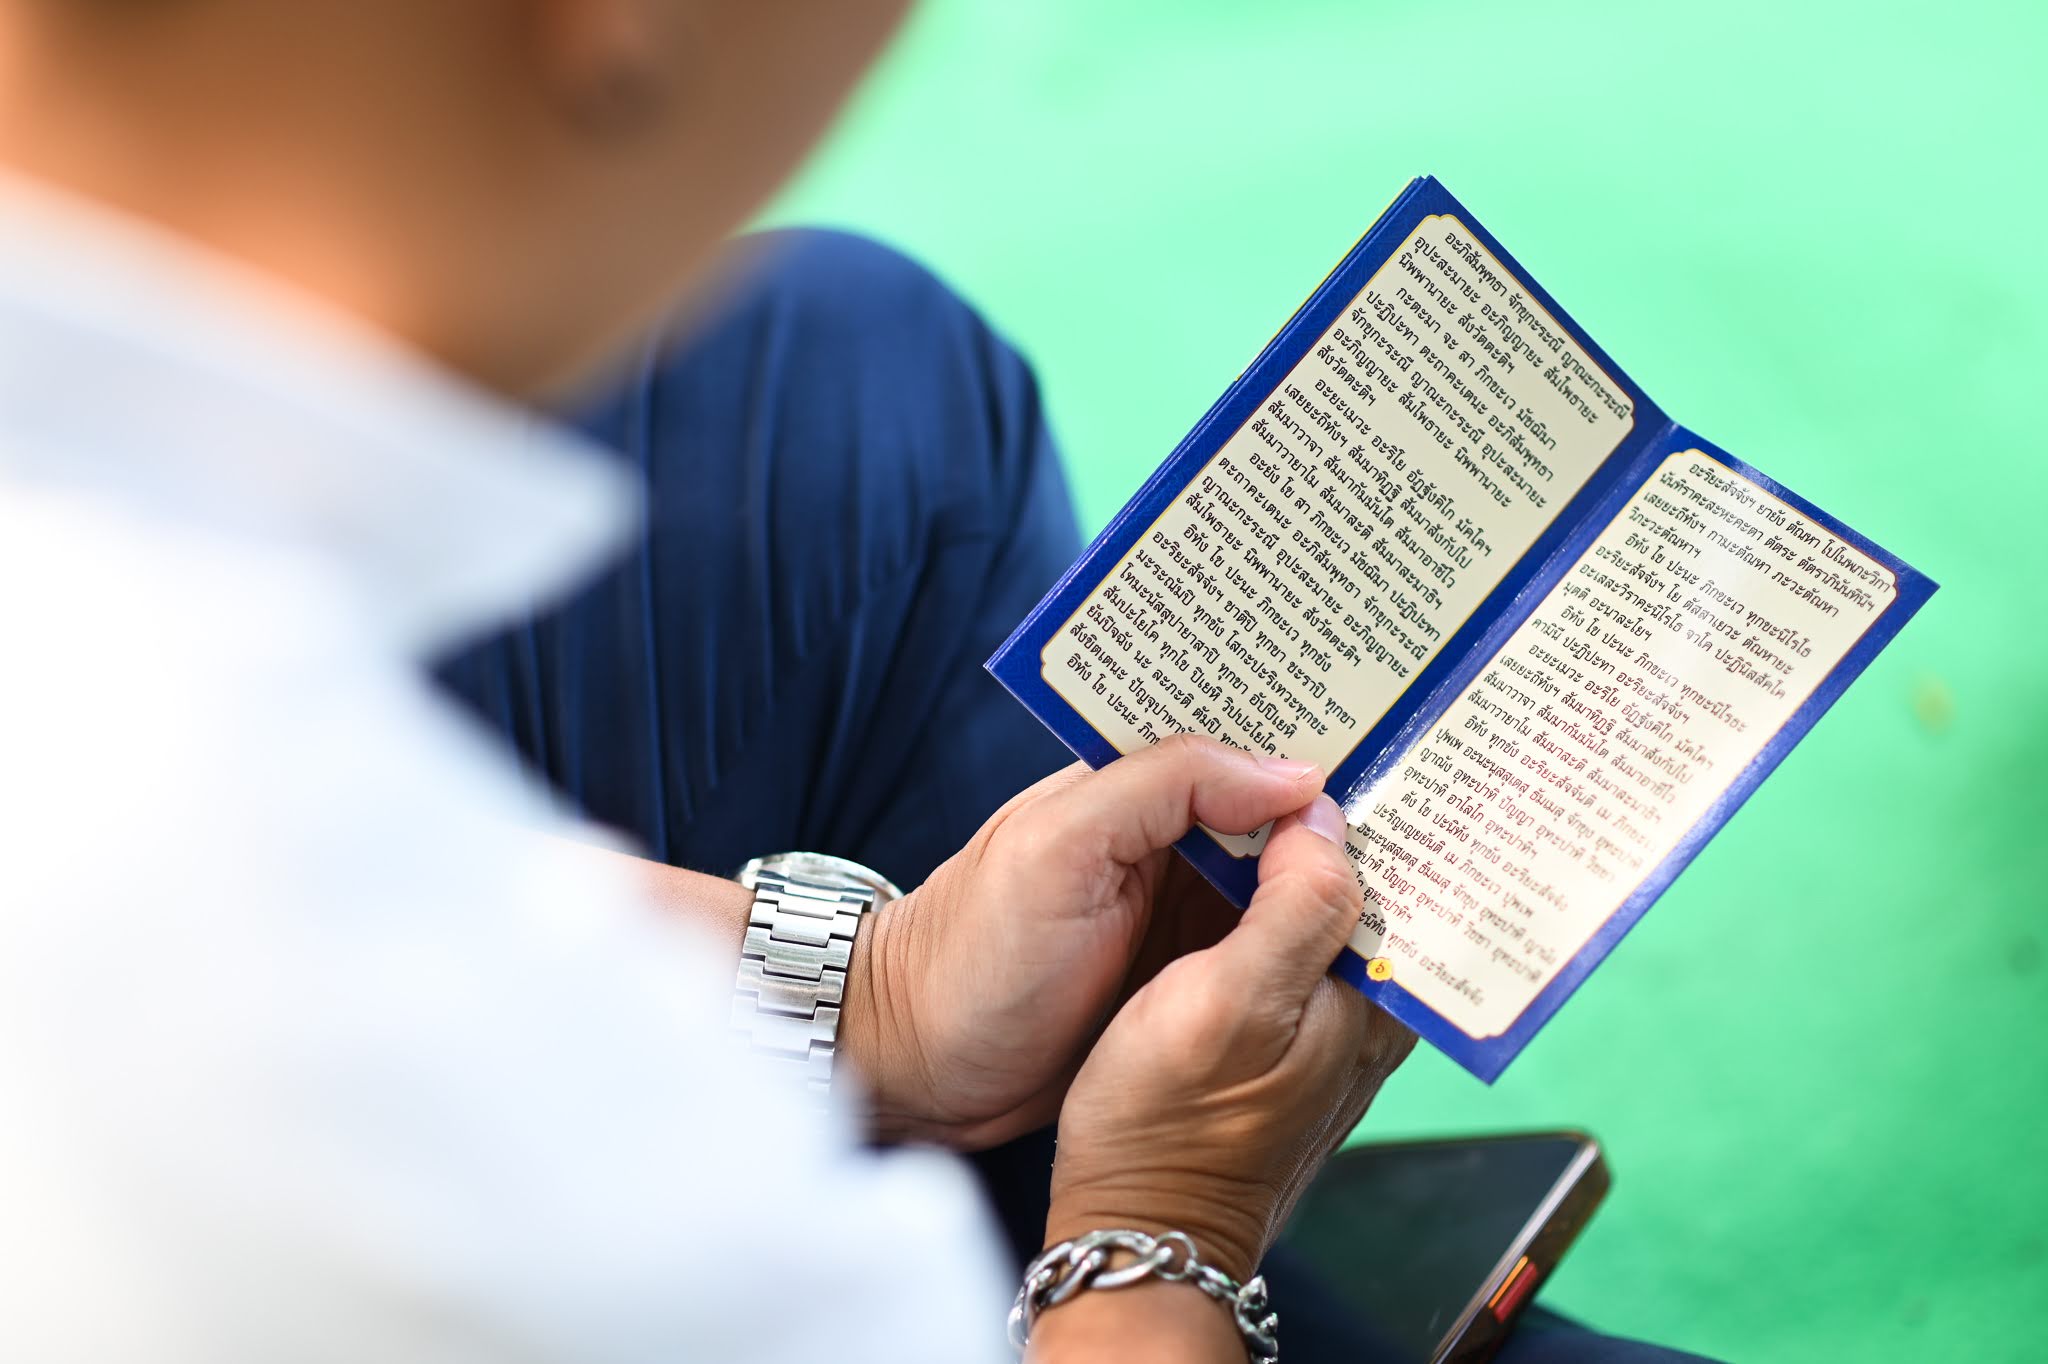 อะภิสัมพุทธา จักขุกะระณี ญาณะกะระณี
อุปะสะมายะ อะภิญญายะ สัมโพธายะ
นิพพานายะ สังวัตตะติฯ
กะตะมา จะ สา ภิกขะเว มัชฌิมา
ปะฏิปะทา ตะถาคะเตนะ อะภิสัมพุทธา
จักขุกะระณี ญาณะกะระณี อุปะสะมายะ
อะภิญญายะ สัมโพธายะ นิพพานายะ
สังวัตตะติฯ
อะยะเมวะ อะริโย อัฏฐังคิโก มัคโคฯ
เสยยะถีทังฯ สัมมาทิฏฐิ สัมมาสังกัปโป
สัมมาวาจา สัมมากัมมันโต สัมมาอาชีโว
สัมมาวายาโม สัมมาสะติ สัมมาสะมาธิฯ
อะยัง โข สา ภิกขะเว มัชฌิมา ปะฏิปะทา
ตะถาคะเตนะ อะภิสัมพุทธา จักขุกะระณี
ญาณะกะระณี อุปะสะมายะ อะภิญญายะ
สัมโพธายะ นิพพานายะ สังวัตตะติฯ
อิทัง โข ปะนะ ภิกขะเว ทุกขัง
อะริยะสัจจังฯ ชาติปิ ทุกขา ชะราปิ ทุกขา
มะระณัมปิ ทุกขัง โสกะปะริเทวะทุกขะ
โทมะนัสสุปายาสาปิ ทุกขา อัปปิเยหิ
สัมปะโยโค ทุกโข ปิเยหิ วิปปะโยโค
ยัมปิจฉัง นะ ละภะติ ตัมปิ
สังขิตเตนะ
อิทัง โข ปะนะ
อะริยะสัจจังฯ ยายัง ตัณหา โปโนพภะวิกา
นันทิราคะสะหะคะตา ตัตระ ตัตราภินันทินีฯ
เสยยะถีทังฯ กามะตัณหา ภะวะตัณหา
วิภะวะตัณหาฯ
อิทัง โข ปะนะ ภิกขะเว ทุกขะนิโรโธ
อะริยะสัจจังฯ โย ตัสสาเยวะ ตัณหายะ
อะเสสะวิราคะนิโรโธ จาโค ปะฏินิสสัคโค
มุตติ อะนาละโยฯ
อิทัง โข ปะนะ ภิกขะเว ทุกขะนิโรธะ
คามินี ปะฏิปะทา อะริยะสัจจังฯ
อะยะเมวะ อะริโย อัฏฐังคิโก มัคโคฯ
เสยยะถีทังฯ สัมมาทิฏฐิ สัมมาสังกัปโป
สัมมาวาจา สัมมากัมมันโต สัมมาอาชีโว
สัมมาวายาโม สัมมาสะติ สัมมาสะมาธิฯ
อิทัง ทุกขัง อะริยะสัจจันติ เม ภิกขะเว
ปุพเพ อะนะนุสสุเตสุ ธัมเมสุ จักขุง อุทะปาทิ
ญาณัง อุทะปาทิ ปัญญา อุทะปาทิ วิชชา
อุทะปาทิ อาโลโก อุทะปาทิฯ
ตัง โข ปะนิทัง ทุกขัง อะริยะสัจจัง
ปะริญเญยยันติ เม ภิกขะเว ปุพเพ
อะนะนุสสุเตสุ ธัมเมสุ จักขุง อุทะปาทิ ญาณัง
ปัญญา อุทะปาทิ วิชชา อุทะปาทิ
อุทะปาทิฯ
ทุกขัง อะริยะสัจจัง
๖